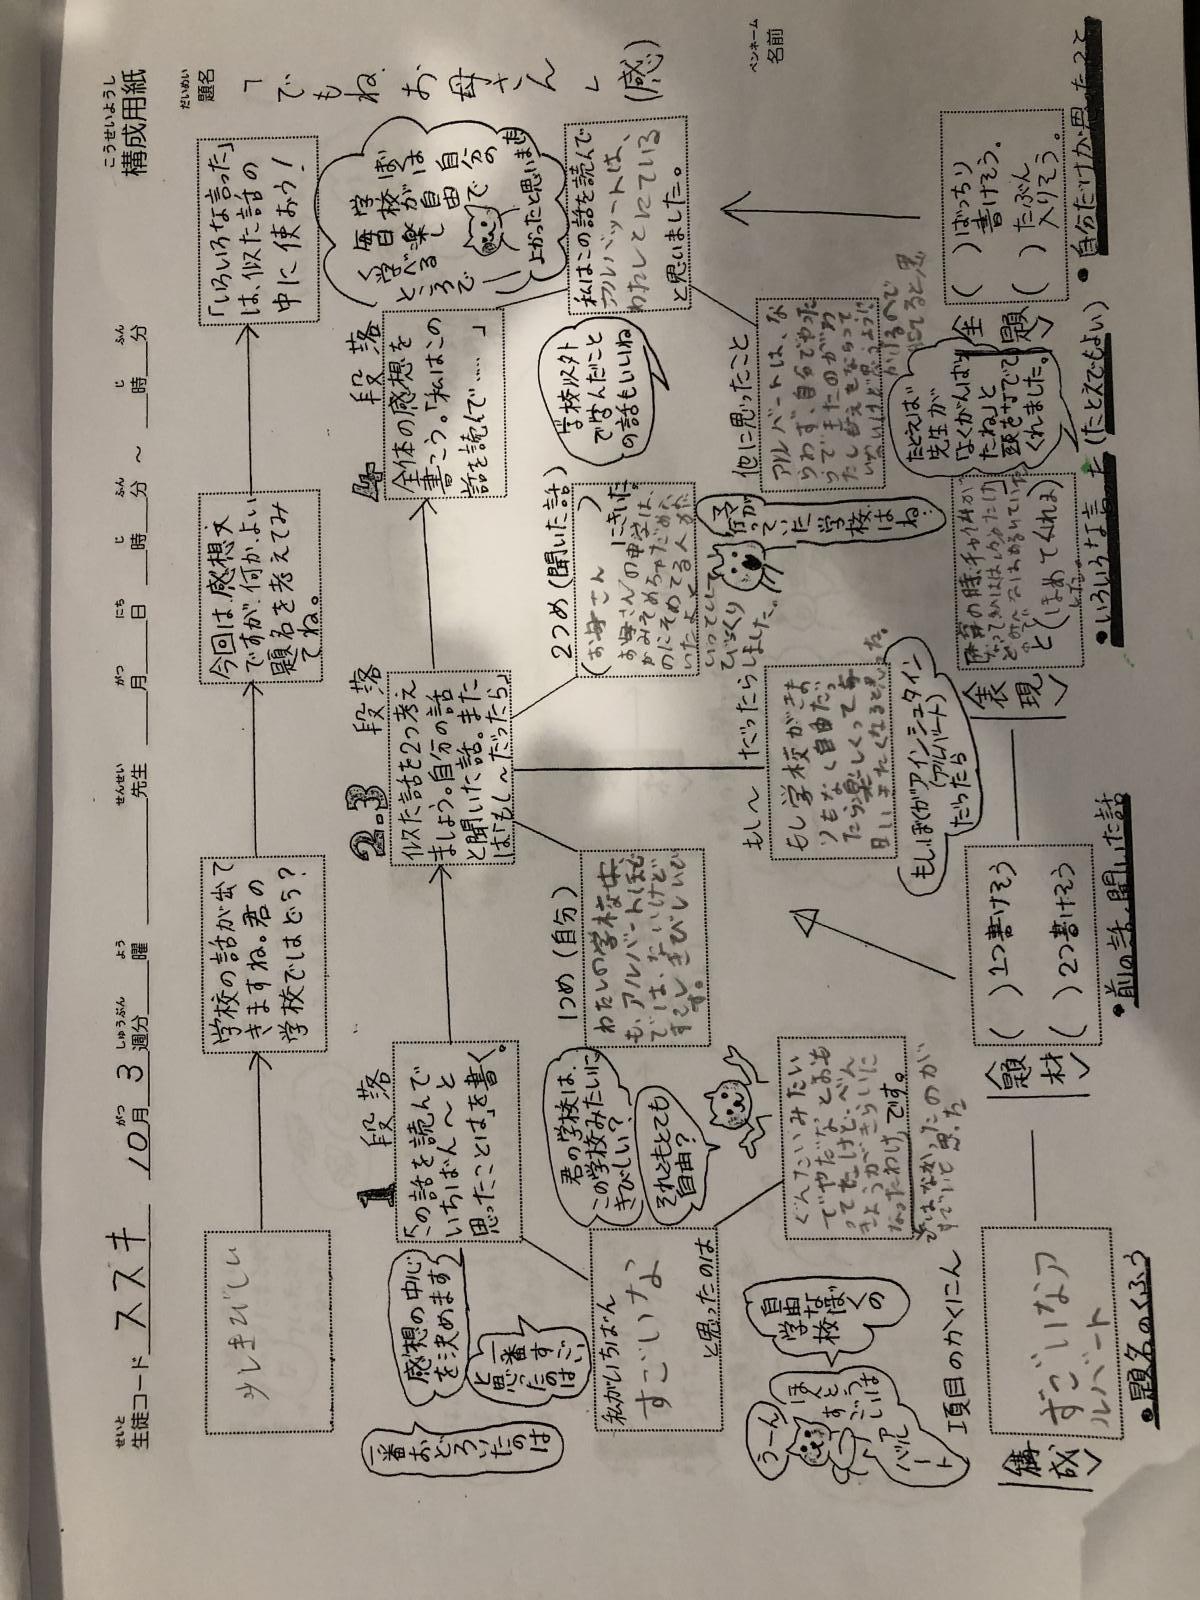 こうせいようし
構成用紙
せいと
生徒コード ススキ
がつ しゅうぶん よう
10月3週分 曜
せんせい
先生
がつ にち じ ふん じ ふん
月 日 時 分 ～ 時 分
だいめい
題名
「でもね、お母さん」(感)
ペンネーム
名前
少しきびしい
学校の話が出て
きますね。君の
学校ではどう？
今回は、感想文
ですが、何か、よい
題名を考えてみ
てね。
「いろいろな言った」
は、似た話の
中に使おう！
1段落
「この話を読んで
いちばん～と
思ったことは」を書く。
2.3段落
似た話を2つ考え
ましょう。自分の話
と聞いた話。また
は「もし～だったら」
4段落
全体の感想を
書こう。「私はこの
話を読んで……」
学校は
毎日が自由で
楽しく
学べる
ところで
自分の
上かったと思います
一番おどろいたのは
感想の中心
を決めます
一番すごい
と思ったのは
私がいちばん
すごいな
と思ったのは
君の学校は、
この学校みたいに
きびしい？
それともとても
自由？
1つめ(自分)
わたしの学校
も、アルバートほど
では、ないけど
すこしきびしい
です。
2つめ(聞いた話)
(お母さん)にきいた。
お母さんの中学は、
かみそめちゃだめな
のにそめてる人が
いたよと
いってして
びっくり
しました。
学校以外
で学んだこと
の話もいいね
私はこの話を読んで
アルバートは、
わたしとにている
と思いました。
うーん
ほんとうは
すごい
アルバート
自由な
学校
ぼくの
ぐんたいみたい
でやだな とおも
ってたけど、べん
きょうがきらいに
なったわけ です。
ではなかったのが
すごいと思った
もし～だったら
もし学校がきま
りもなく自由だっ
たら楽しくって毎
日いきたくなると思った。
もしぼくがアインシュタイン
(アルバート)
だったら
予言が
っていた
学校は
ね…
他に思ったこと
アルバートは、な
らわず、自分でやった
たとえば
先生が
「よくがんばっ
たね」と
頭を打でて
くれました。
項目のかくにん
〈構成〉
すごいなア
ルバート
〈題材〉
( )1つ書けそう
( )2つ書けそう
〈表現〉
と(ほめてくれる
〈主題〉
( )ばっちり
書けそう。
( )たぶん
入りそう。
•題名のくふう
•前の話、聞いた話
•いろいろな言った(たとえでもよい)
•自分だけが思ったこと